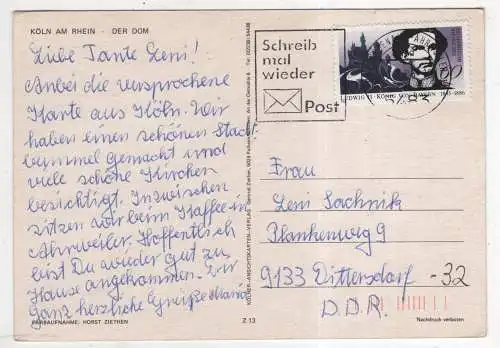 KÖLN AM RHEIN - DER DOM
Liebe Tante Leni!
Anbei die versprochene
Karte aus Köln. Wir
haben einen schönen Stadt-
bummel gemacht und
viele schöne Kirchen
besichtigt. Inzwischen
sitzen wir beim Kaffee in
Ahrweiler. Hoffentlich
bist Du wieder gut zu
Hause angekommen.
Ganz herzliche Grüße
FARBAUFNAHME: HORST ZIETHEN
Z 13
KÖLNER-ANSICHTSKARTEN-VERLAG
Schreib
mal
wieder
Post
LUDWIG II · KÖNIG VON BAYERN 1845-1886
Frau
Leni Sachnik
Plankenweg 9
9133 Dittersdorf -32
D.D.R.
Nachdruck verboten